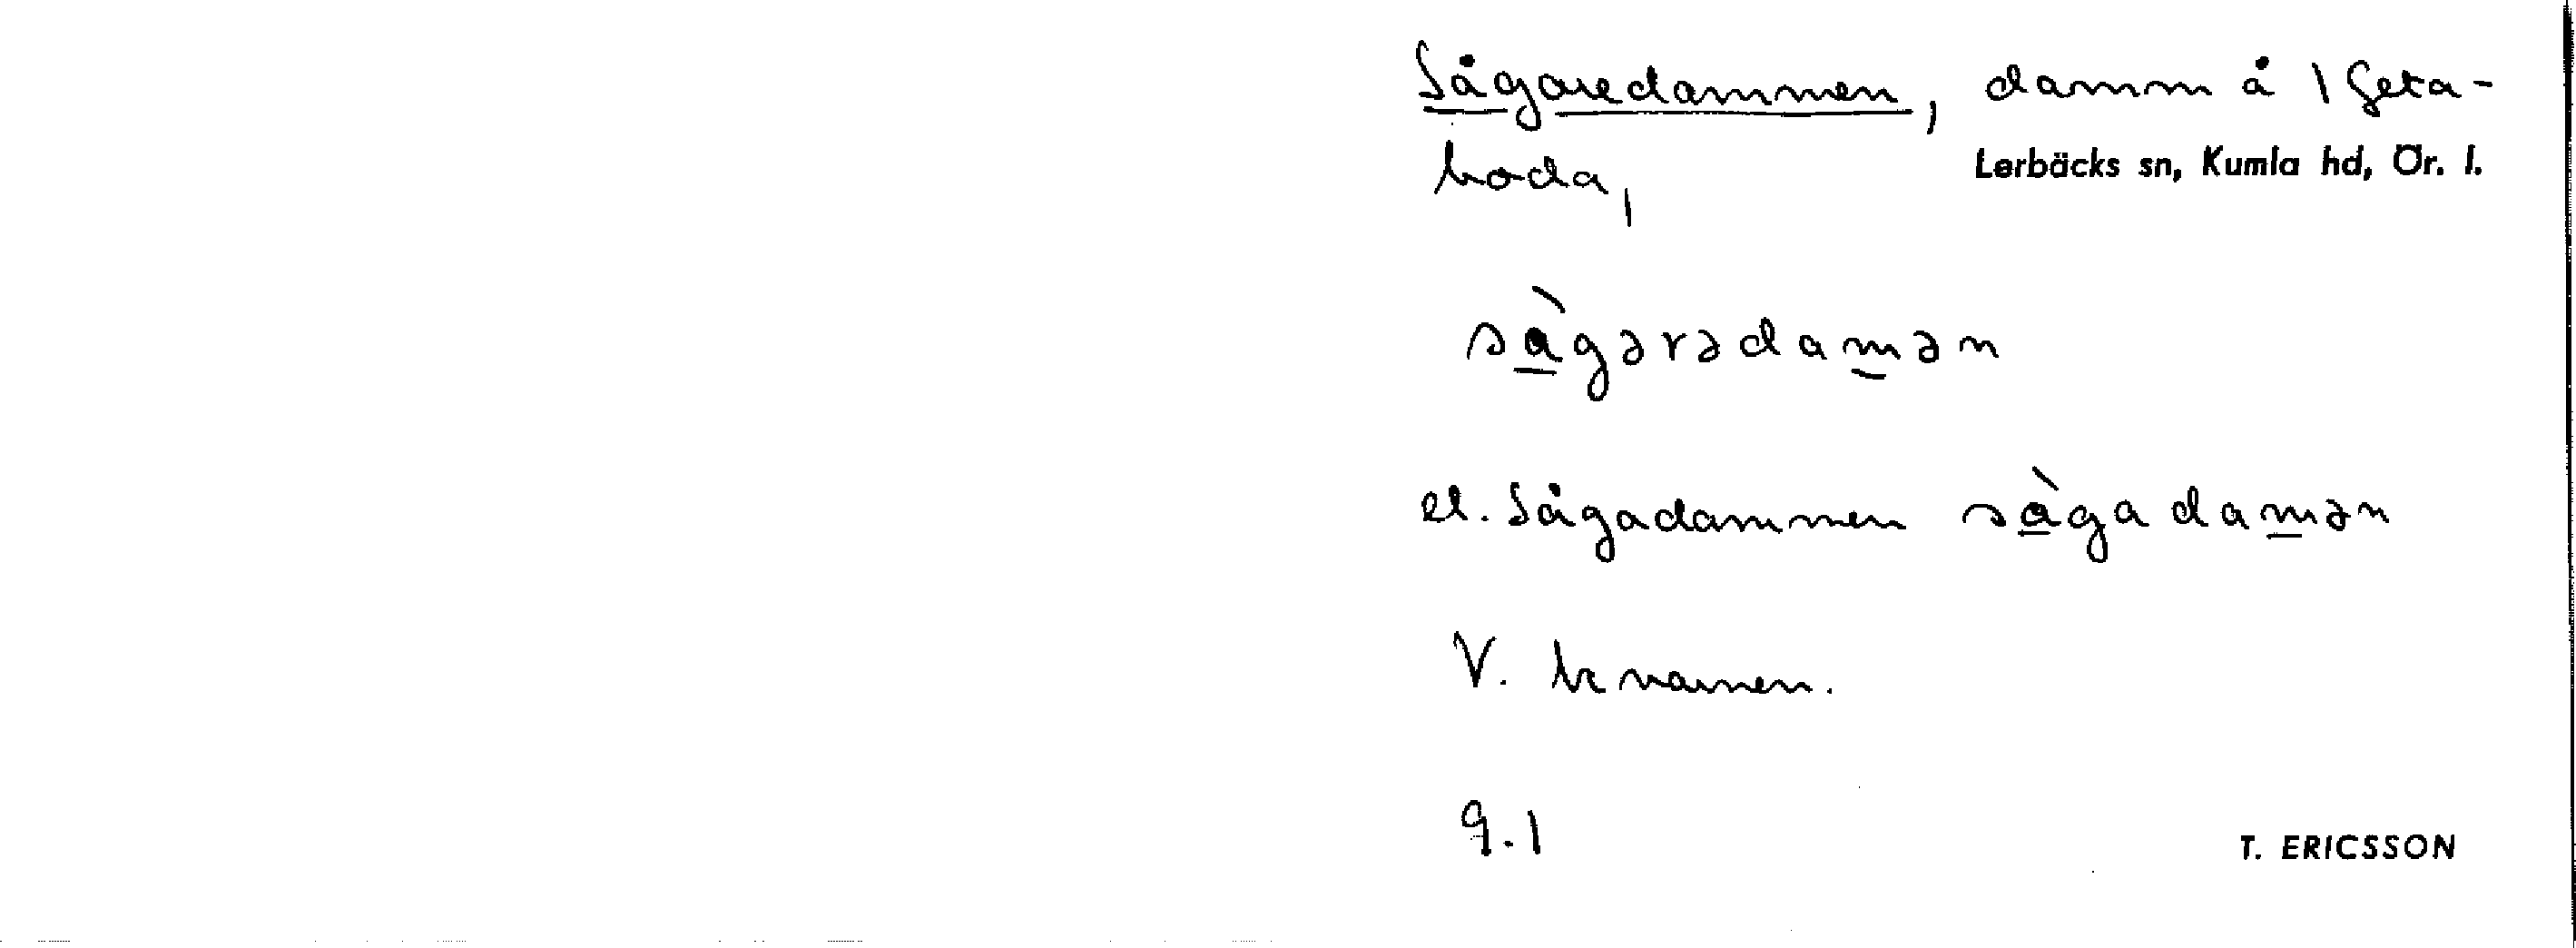 Sågaredammen, damm å 1 Geta-
boda,
Lerbäcks sn, Kumla hd, Ör. l.
sàgəradamən
el. Sågadammen sàgadamən
V. kr namnen.
9.1
T. ERICSSON